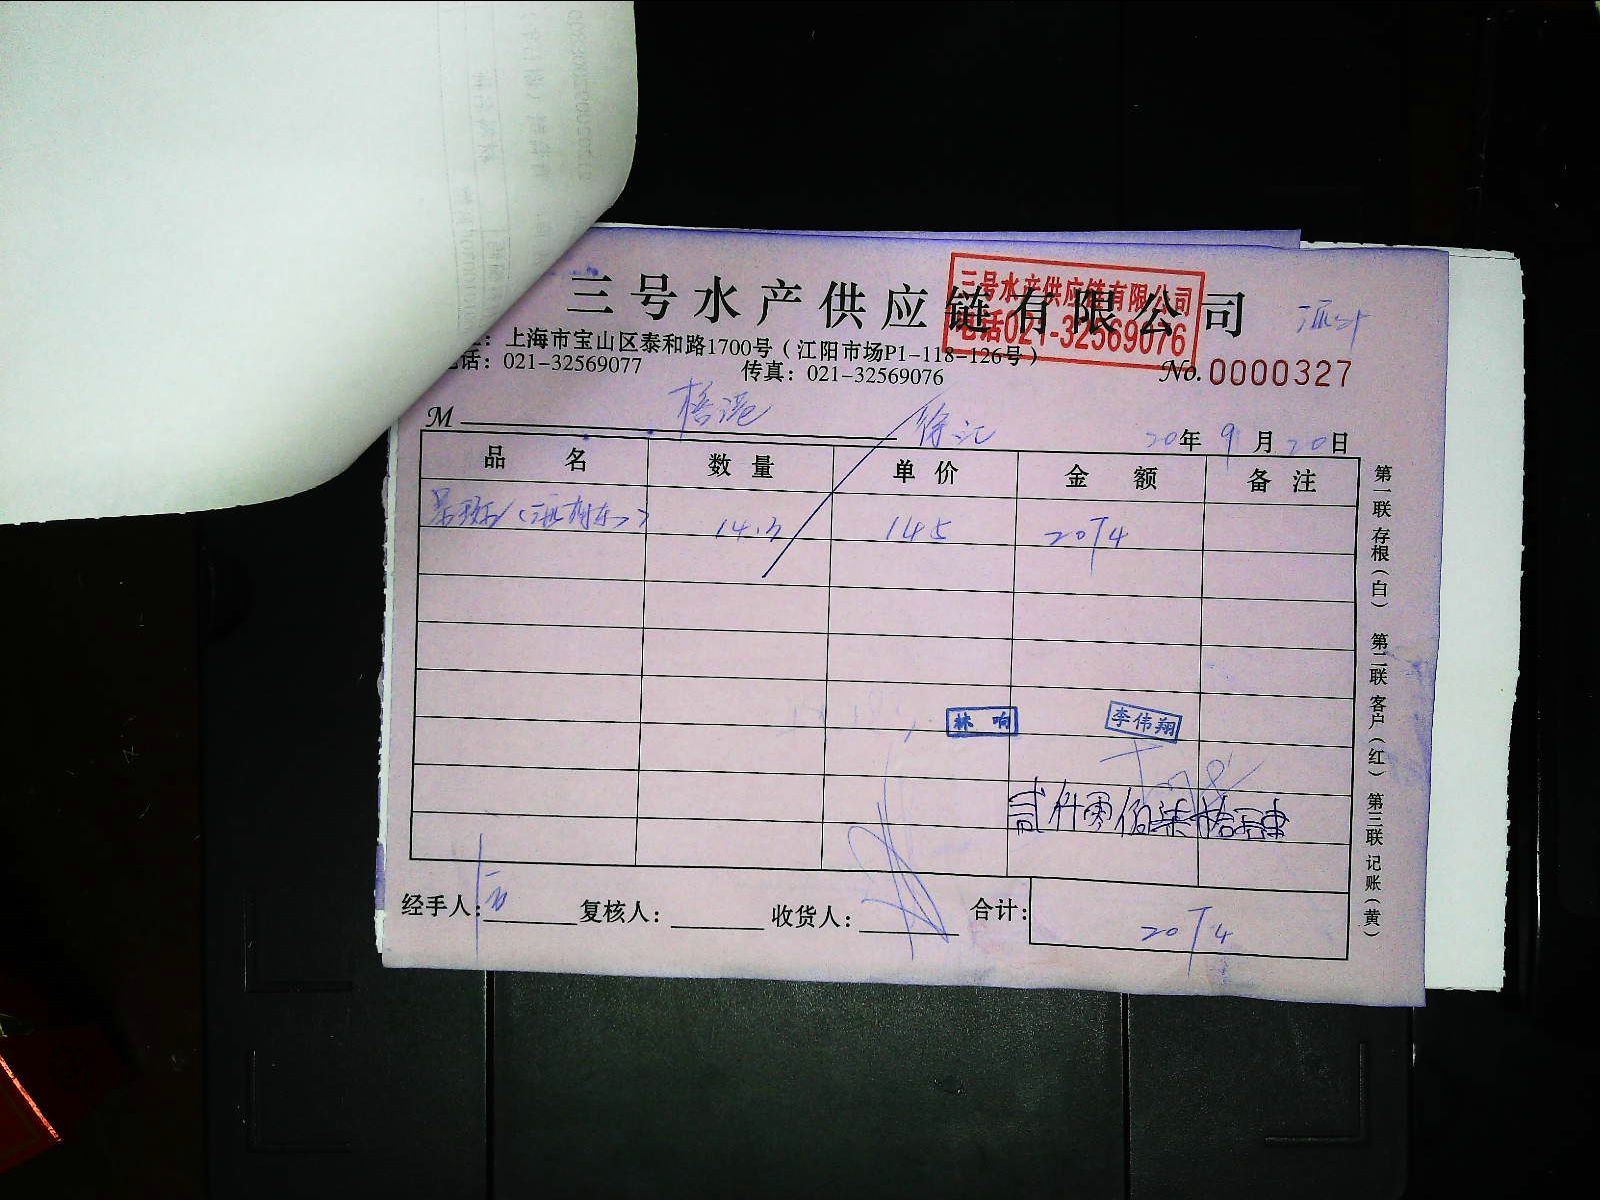 三号水产供应链有限公司
三号水产供应链有限公司
电话021-32569076
上海市宝山区泰和路1700号（江阳市场P1-118-126号）
电话：021-32569077 传真：021-32569076
No.0000327
M 徐汇 20年9月20日
品名 数量 单价 金额 备注
145 2074
林响 李伟翔
贰仟零佰柒拾肆
经手人： 复核人： 收货人： 合计： 2074
第一联存根（白） 第二联客户（红） 第三联记账（黄）